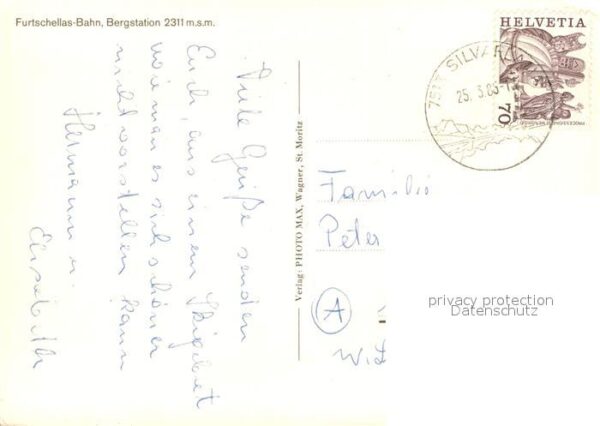 Furtschellas-Bahn, Bergstation 2311 m.s.m.
HELVETIA
70
7514 SILVAPL
25. 3. 86-
Viele Grüße senden
Euch, aus einem Skigebiet
wie man es sich schöner
nicht vorstellen kann
Hermann u.
Elisabeth
Verlag: PHOTO MAX, Wagner, St. Moritz
Familie
Peter
A
privacy protection
Datenschutz